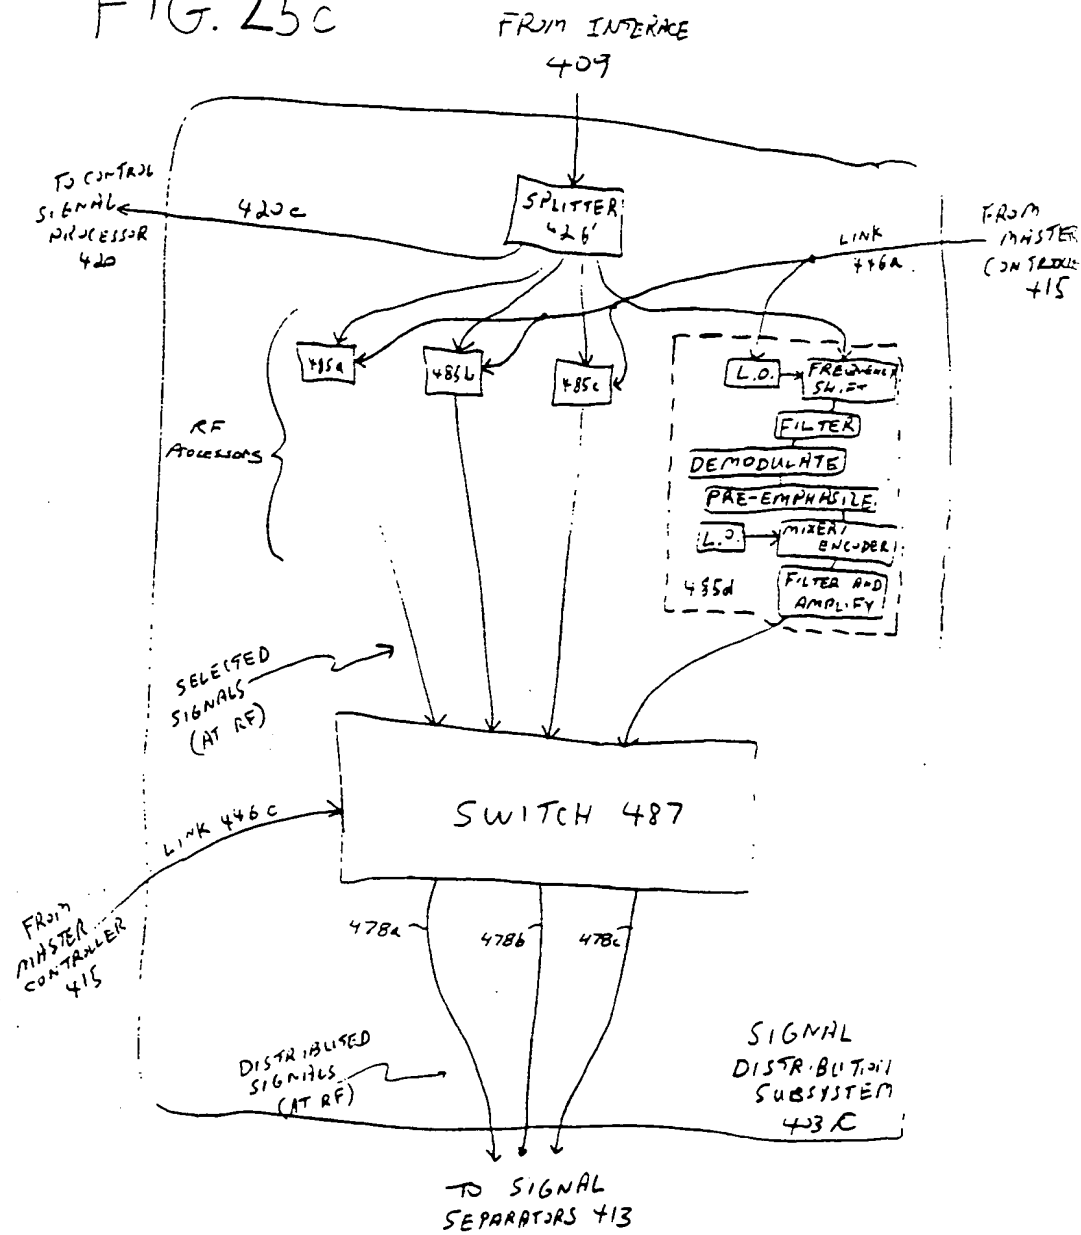 FIG. 25c
FROM INTERFACE
409
TO CONTROL
SIGNAL
PROCESSOR
420
420c
SPLITTER
426'
LINK
446a
FROM
MASTER
CONTROLLER
415
485a
485b
485c
L.O.
FREQUENCY
SHIFT
FILTER
DEMODULATE
PRE-EMPHASIZE
L.O.
MIXER/
ENCODER
FILTER AND
AMPLIFY
485d
RF
PROCESSORS
SELECTED
SIGNALS
(AT RF)
SWITCH 487
LINK 446c
FROM
MASTER
CONTROLLER
415
478a
478b
478c
DISTRIBUTED
SIGNALS
(AT RF)
SIGNAL
DISTRIBUTION
SUBSYSTEM
403c
TO SIGNAL
SEPARATORS 413